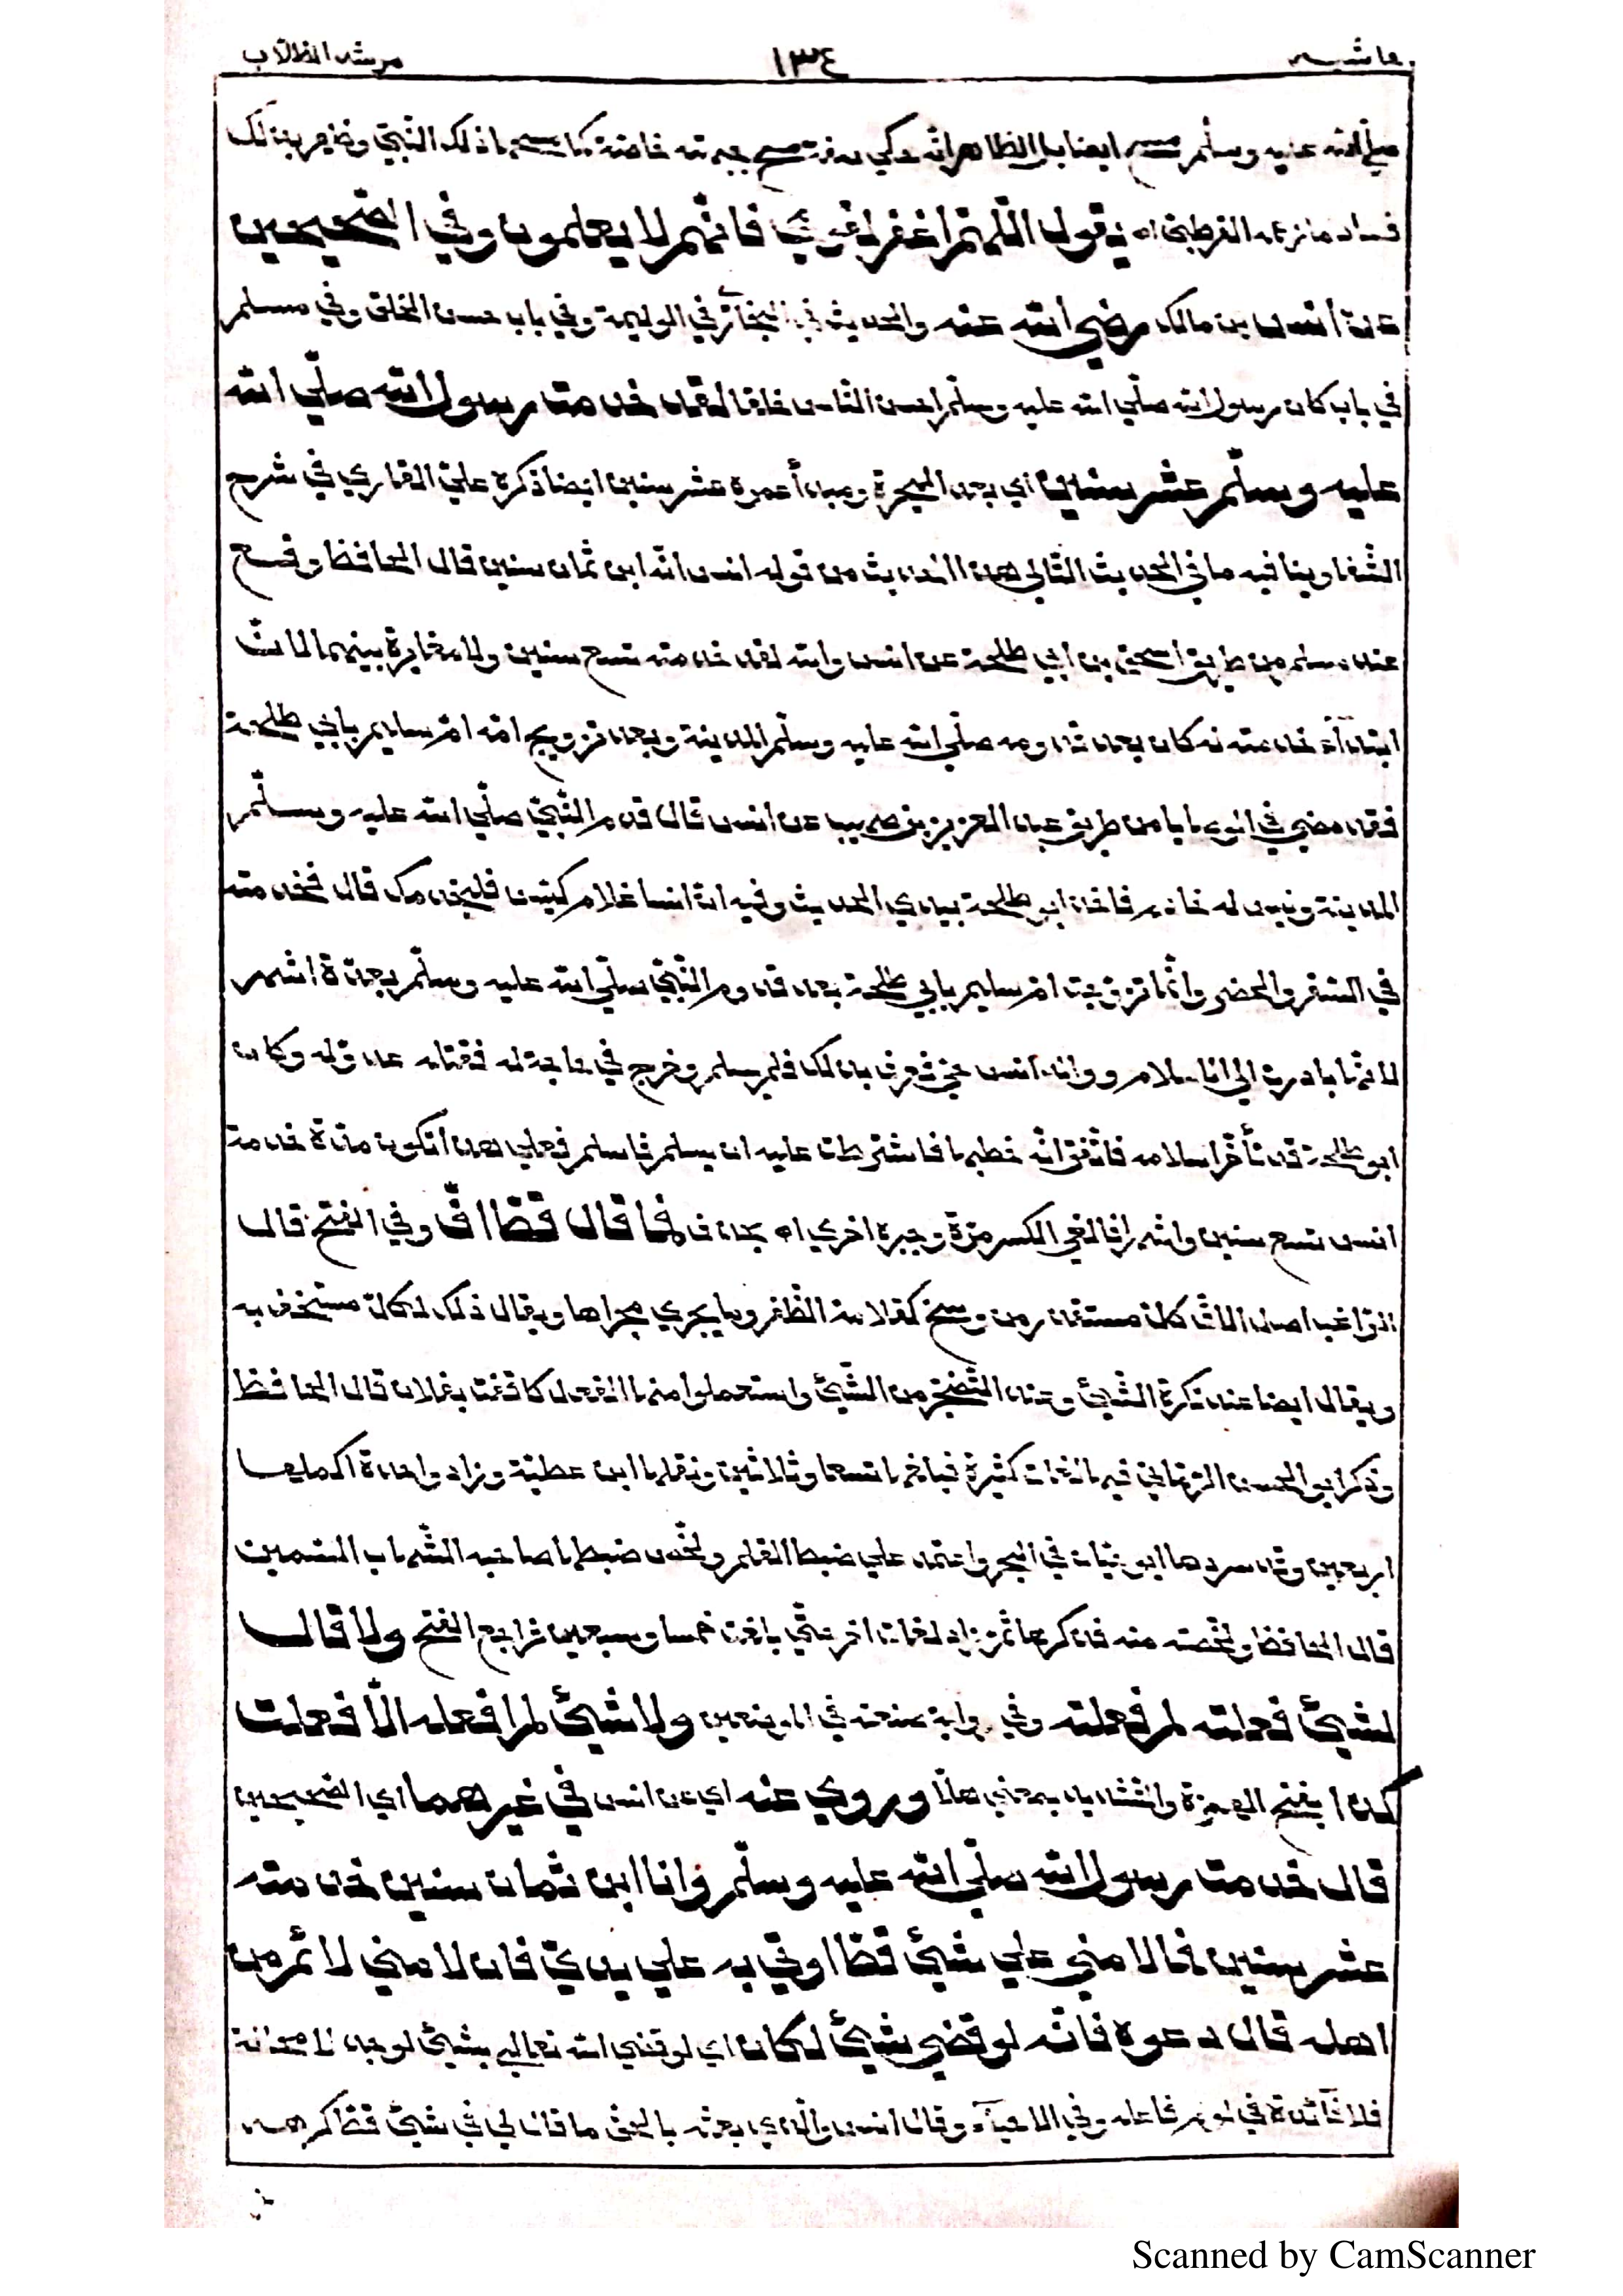 حاشية ١٣٤ مرشد الطلاب
صلى الله عليه وسلم مسح ايضا بل الظاهر انه حكي صفة مسح جبهته خاصة كما مسحها ذلك النبي وظهر بذلك
فساد ما زعمه القرطبي اه يقول اللهم اغفر لقومي فانهم لا يعلمون وفي الصحيحين
عن أنس بن مالك رضي الله عنه والحديث في البخاري في الوليمة وفي باب حسن الخلق وفي مسلم
في باب كان رسول الله صلى الله عليه وسلم احسن الناس خلقا لقد خدمت رسول الله صلى الله
عليه وسلم عشر سنين اي بعد الهجرة ومبدأ عمره عشر سنين ايضا ذكره علي القاري في شرح
الشفا وينافيه ما في الحديث التالي لهذا الحديث من قوله انس انه ابن ثمان سنين قال الحافظ وقع
عند مسلم من طريق اسحق بن ابي طلحة عن انس والله لقد خدمته تسع سنين ولا مغايرة بينهما لان
ابتداء خدمته له كان بعد قدومه صلى الله عليه وسلم المدينة وبعد تزويج امه ام سليم بابي طلحة
فقد مضى في الوصايا من طريق عبد العزيز بن صهيب عن انس قال قدم النبي صلى الله عليه وسلم
المدينة وليس له خادم فاخذ ابو طلحة بيدي الحديث وفيه ان انسا غلام كيس فليخدمك قال فخدمته
في السفر والحضر وانما تزوجت ام سليم بابي طلحة بعد قدوم النبي صلى الله عليه وسلم بعدة اشهر
لانها بادرت الى الاسلام ووالد انس حي فعرف بذلك فلم يسلم وخرج في حاجة له فقتله عدو له وكان
ابو طلحة قد تأخر اسلامه فاتفق انه خطبها فاشترطت عليه ان يسلم فاسلم فعلي هذا تكون مدة خدمة
انس تسع سنين واشهرا فالغي الكسر مرة وجبره اخري اه بحذف فما قال قط اف وفي الفتح قال
الراغب اصل الاف كل مستقذر من وسخ كقلامة الظفر وما يجري مجراها ويقال ذلك لكل مستخف به
ويقال ايضا عند تكره الشيئ وعند التضجر من الشيئ واستعملوا منها الفعل كاففت بفلان قال الحافظ
وذكر ابو الحسن الرماني فيها لغات كثيرة فبلغها تسعا وثلاثين ونقلها ابن عطية وزاد واحدة اكملها
اربعين وقد سردها ابو حيان في البحر واعتمد علي ضبط القلم ولخص ضبطها صاحبه الشهاب السمين
قال الحافظ ولخصته منه فذكرها ثم زاد لغات اخر حتي بلغت خمسا وسبعين راجع الفتح ولا قال
لشيئ فعلته لم فعلته وفي رواية صنعته في الموضعين ولا شيئ لم افعله الا فعلت
كذا بفتح الهمزة والتشديد بمعني هلا وروي عنه اي عن انس في غيرهما اي الصحيحين
قال خدمت رسول الله صلى الله عليه وسلم وانا ابن ثمان سنين خدمته
عشر سنين فما لامني علي شيئ قط اوتي به علي يدي فان لامني لائم من
اهله قال دعوه فانه لو قضي شيئ لكان اي لو قضي الله تعالي بشيئ لوجد لا محالة
فلا فائدة في لوم فاعله وفي الاحياء وقال انس والذي بعثه بالحق ما قال لي في شيئ قط كرهه